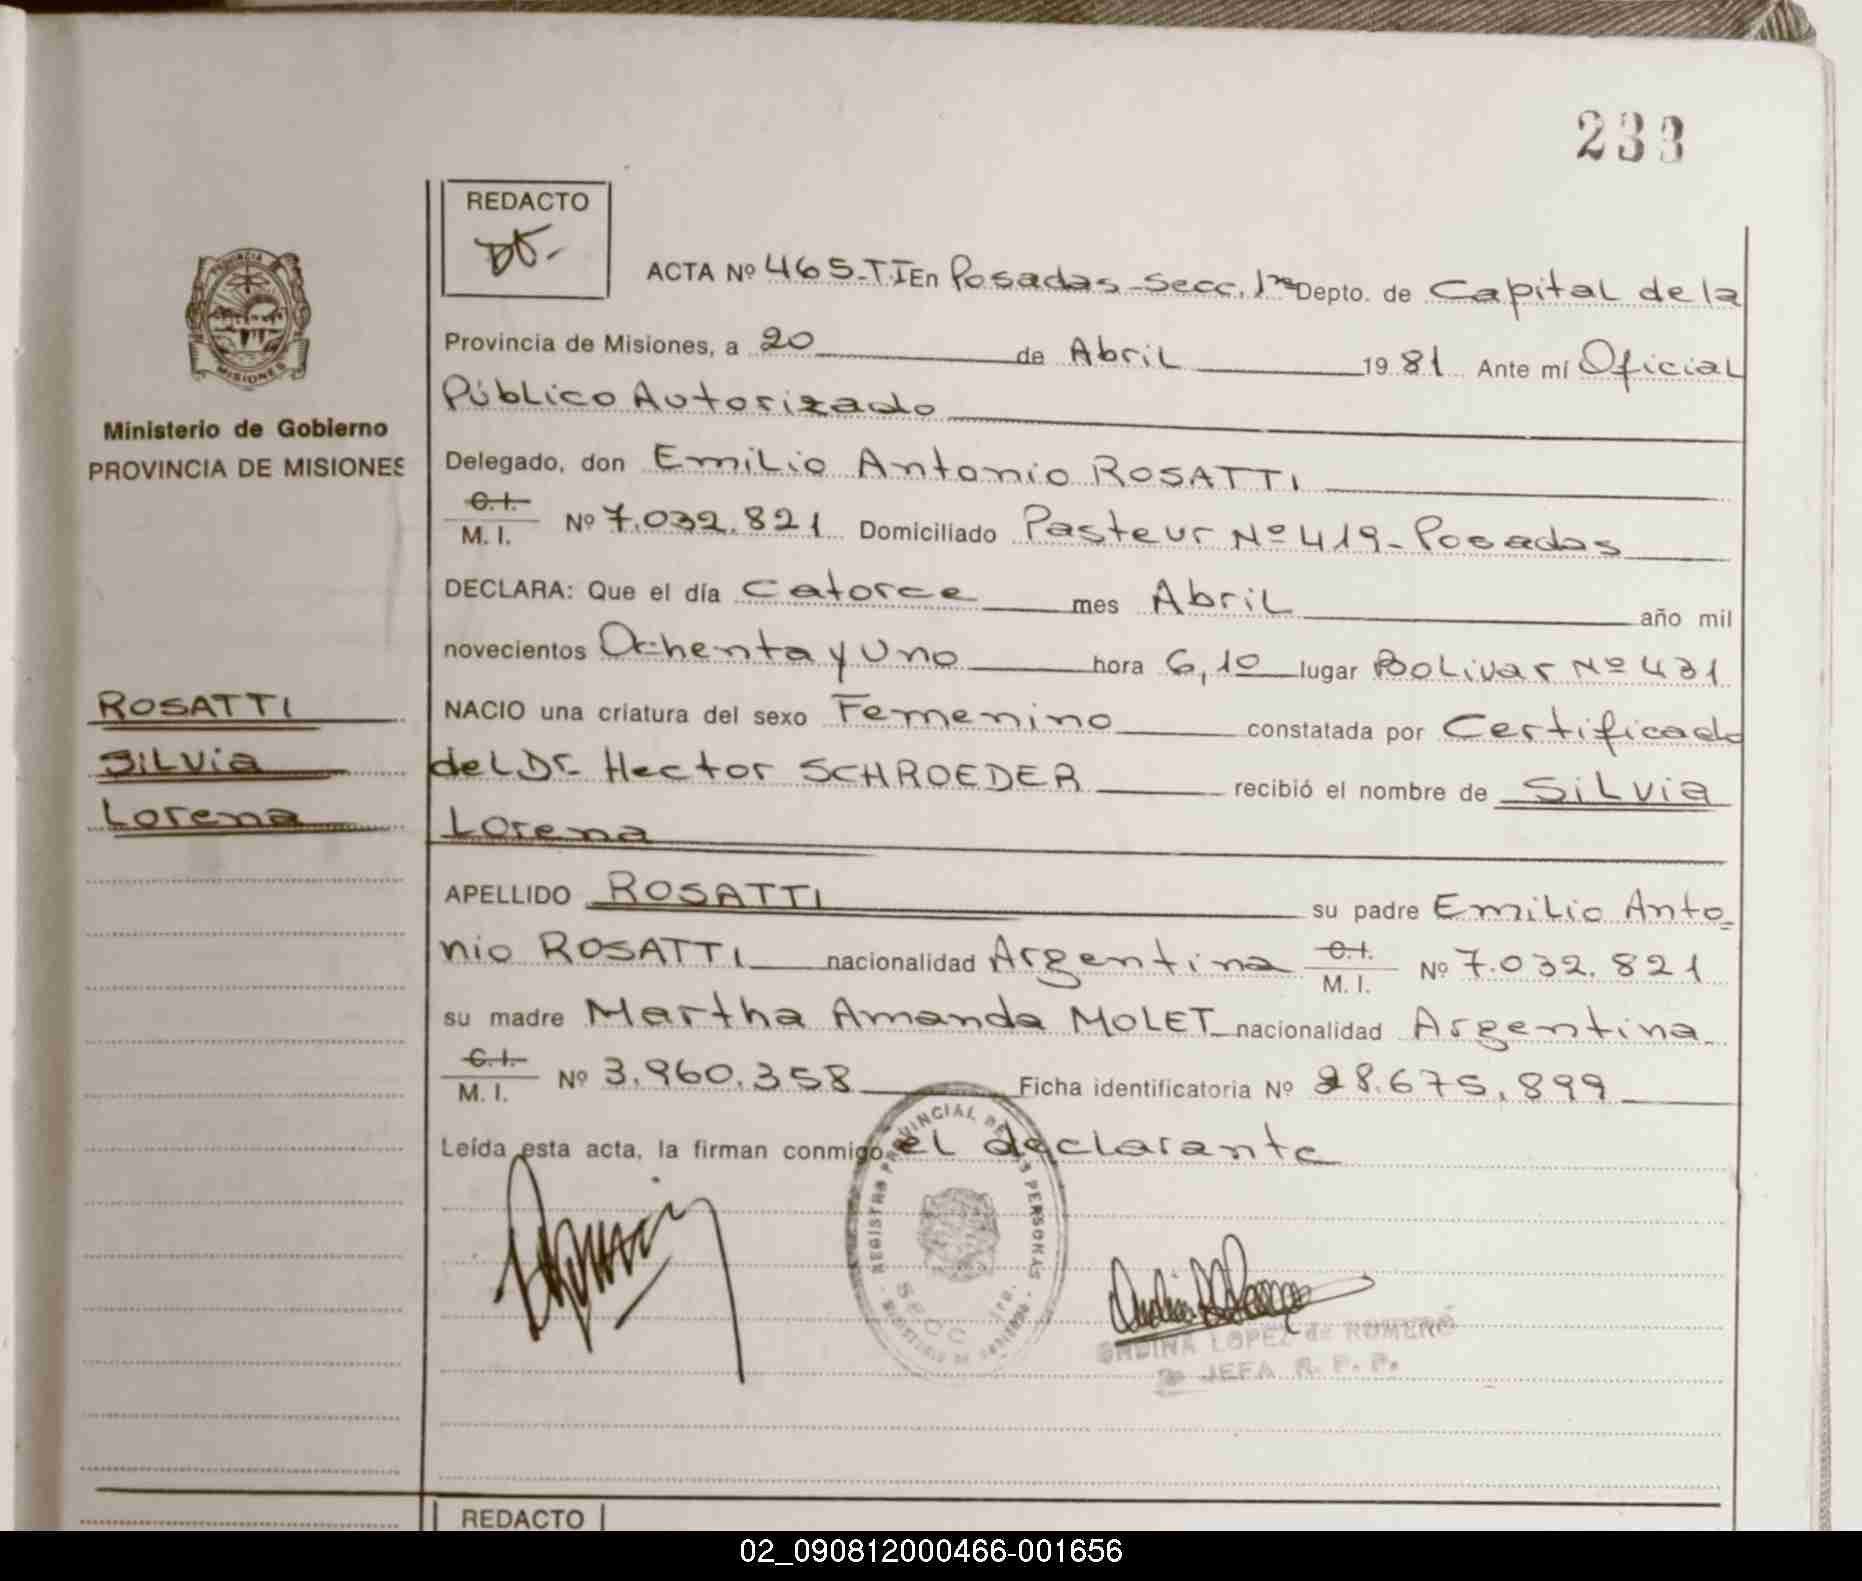 233
REDACTO
PROVINCIA DE
MISIONES
Ministerio de Gobierno
PROVINCIA DE MISIONES
ACTA Nº 465-T.I En Posadas-Secc. 1ra Depto. de Capital de la
Provincia de Misiones, a 20 de Abril 1981 Ante mí Oficial
Público Autorizado
Delegado, don Emilio Antonio ROSATTI
C.I.
M. I. Nº 7.032.821 Domiciliado Pasteur Nº 419- Posadas
DECLARA: Que el día Catorce mes Abril año mil
novecientos Ochenta y Uno hora 6,10 lugar Bolivar Nº 431
ROSATTI
Silvia
Lorena
NACIO una criatura del sexo Femenino constatada por Certificado
del Dr. Hector SCHROEDER recibió el nombre de Silvia
Lorena
APELLIDO ROSATTI su padre Emilio Anto-
nio ROSATTI nacionalidad Argentina C.I.
M. I. Nº 7.032.821
su madre Martha Amanda MOLET nacionalidad Argentina
C.I.
M. I. Nº 3.960.358 Ficha identificatoria Nº 28.675.899
Leída esta acta, la firman conmigo el declarante
REGISTRO PROVINCIAL DE LAS PERSONAS
SECC. 1ra.
MINISTERIO DE GOBIERNO
LOPEZ de ROMERO
JEFA R. P. P.
REDACTO
02_090812000466-001656